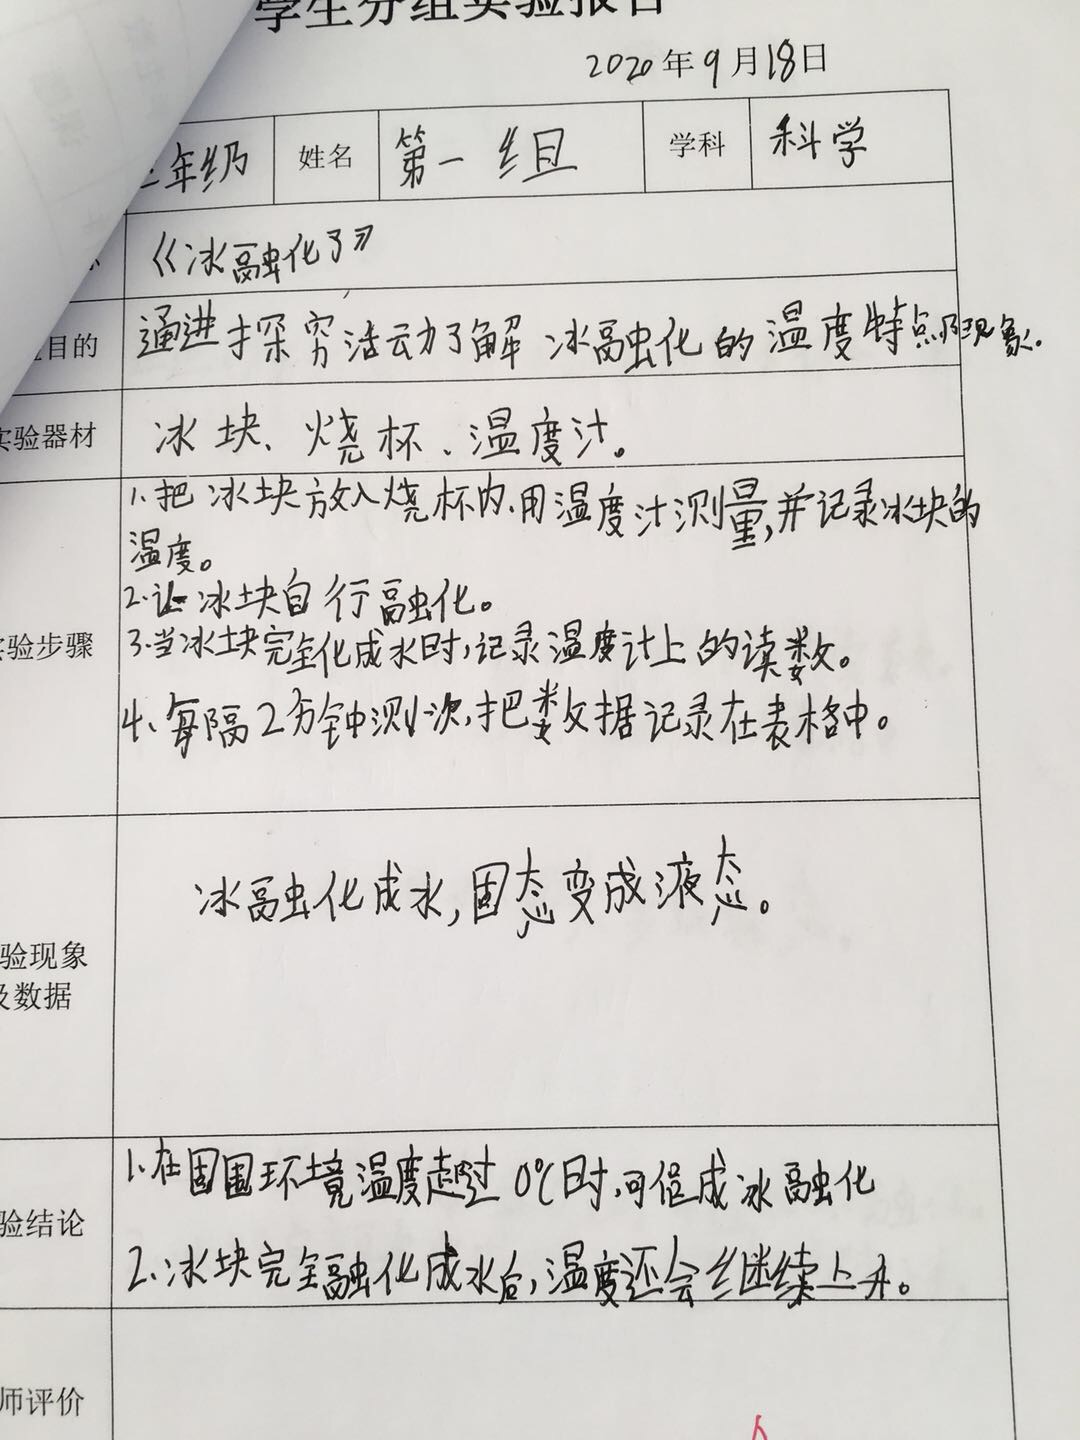 学生分组实验报告
2020年9月18日
三年级 姓名 第一组 学科 科学
《冰融化了》
目的 通进探究活动了解冰融化的温度特点及现象。
实验器材 冰块、烧杯、温度计。
1.把冰块放入烧杯内,用温度计测量,并记录冰块的
温度。
2.让冰块自行融化。
实验步骤 3.当冰块完全化成水时,记录温度计上的读数。
4、每隔2分钟测1次,把数据记录在表格中。
冰融化成水,固态变成液态。
验现象
及数据
1.在固围环境温度超过0℃时,可促成冰融化
验结论
2.冰块完全融化成水后,温度还会继续上升。
师评价